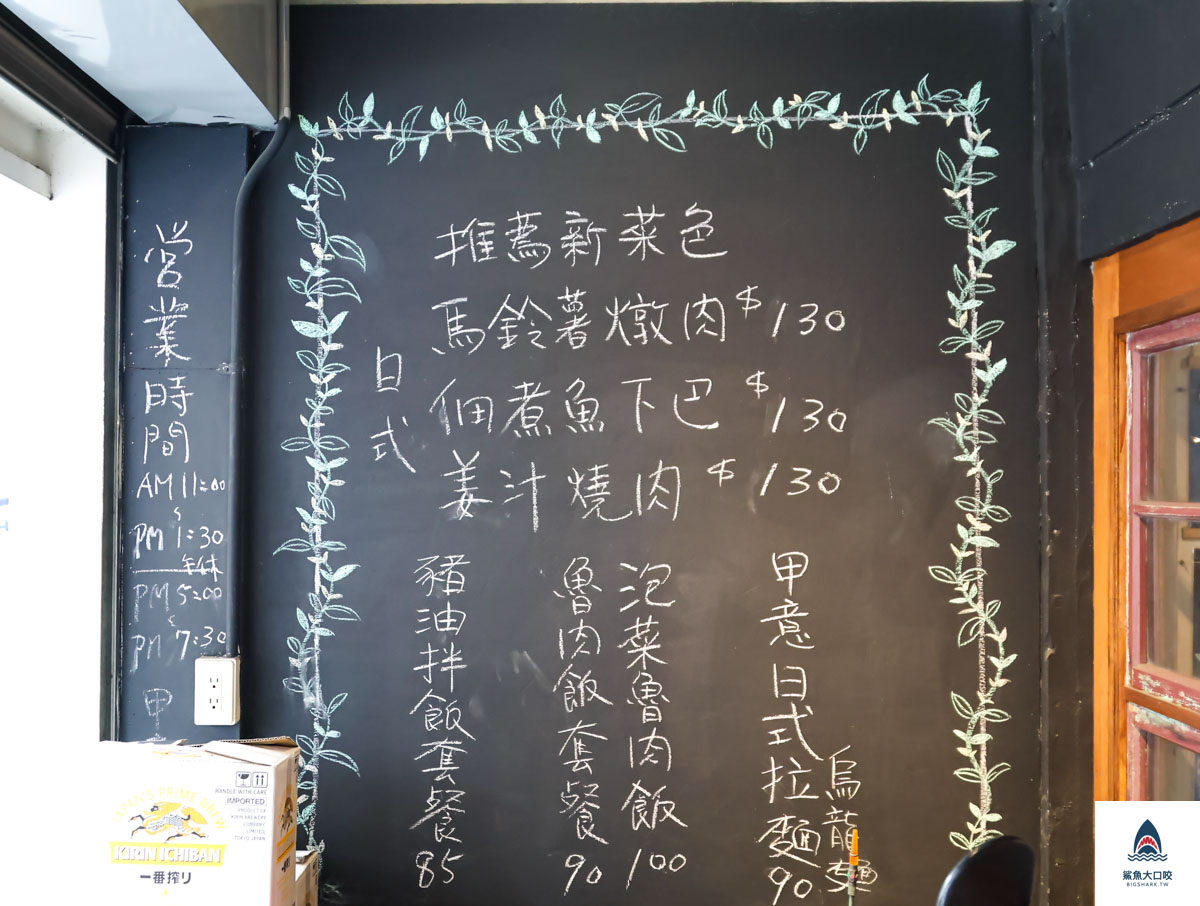 推薦新菜色
日式
馬鈴薯燉肉 $130
佃煮魚下巴 $130
姜汁燒肉 $130
甲意日式拉麵 90
烏龍麵
泡菜魯肉飯 100
魯肉飯套餐 90
豬油拌飯套餐 85
営業時間
AM 11:00
~
PM 1:30
午休
PM 5:00
~
PM 7:30
甲
JAPAN'S PRIME BREW
KIRIN ICHIBAN
一番搾り
HANDLE WITH CARE
IMPORTED
PRODUCT OF
KIRIN BREWERY
COMPANY,
LIMITED
TOKYO, JAPAN
鯊魚大口咬
BIGSHARK.TW